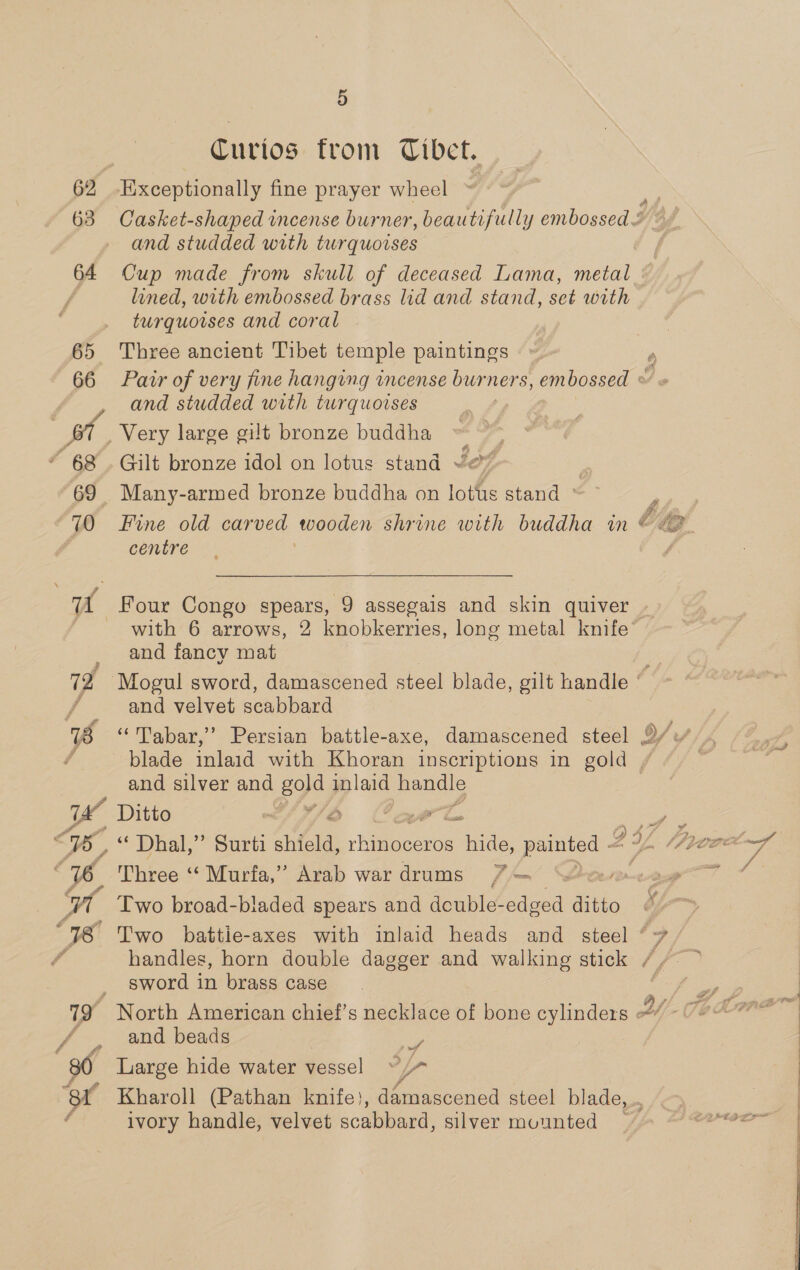 5
Curios from Tibet.
62 Exceptionally fine prayer wheel
63 Casket-shaped incense burner, beautifully embossed
and studded with turquoises
64 Cup made from skull of deceased Lama, metal
lined, with embossed brass lid and stand, set with
turquoises and coral
65 Three ancient Tibet temple paintings
66 Pair of very fine hanging incense burners, embossed
and studded with turquoises
67 Very large gilt bronze buddha
68 Gilt bronze idol on lotus stand
69 Many-armed bronze buddha on lotus stand
70 Fine old carved wooden shrine with buddha in
centre
71 Four Congo spears, 9 assegais and skin quiver
with 6 arrows, 2 knobkerries, long metal knife
and fancy mat
72 Mogul sword, damascened steel blade, gilt handle
and velvet scabbard
73 “Tabar,” Persian battle-axe, damascened steel
blade inlaid with Khoran inscriptions in gold
and silver and gold inlaid handle
74 Ditto
75 “Dhal,” Surti shield, rhinoceros hide, painted
76 Three “Murfa,” Arab war drums
77 Two broad-bladed spears and double-edged ditto
78 Two battle-axes with inlaid heads and steel
handles, horn double dagger and walking stick
sword in brass case
79 North American chief's necklace of bone cylinders
and beads
80 Large hide water vessel
81 Kharoll (Pathan knife), damascened steel blade,
ivory handle, velvet scabbard, silver mounted